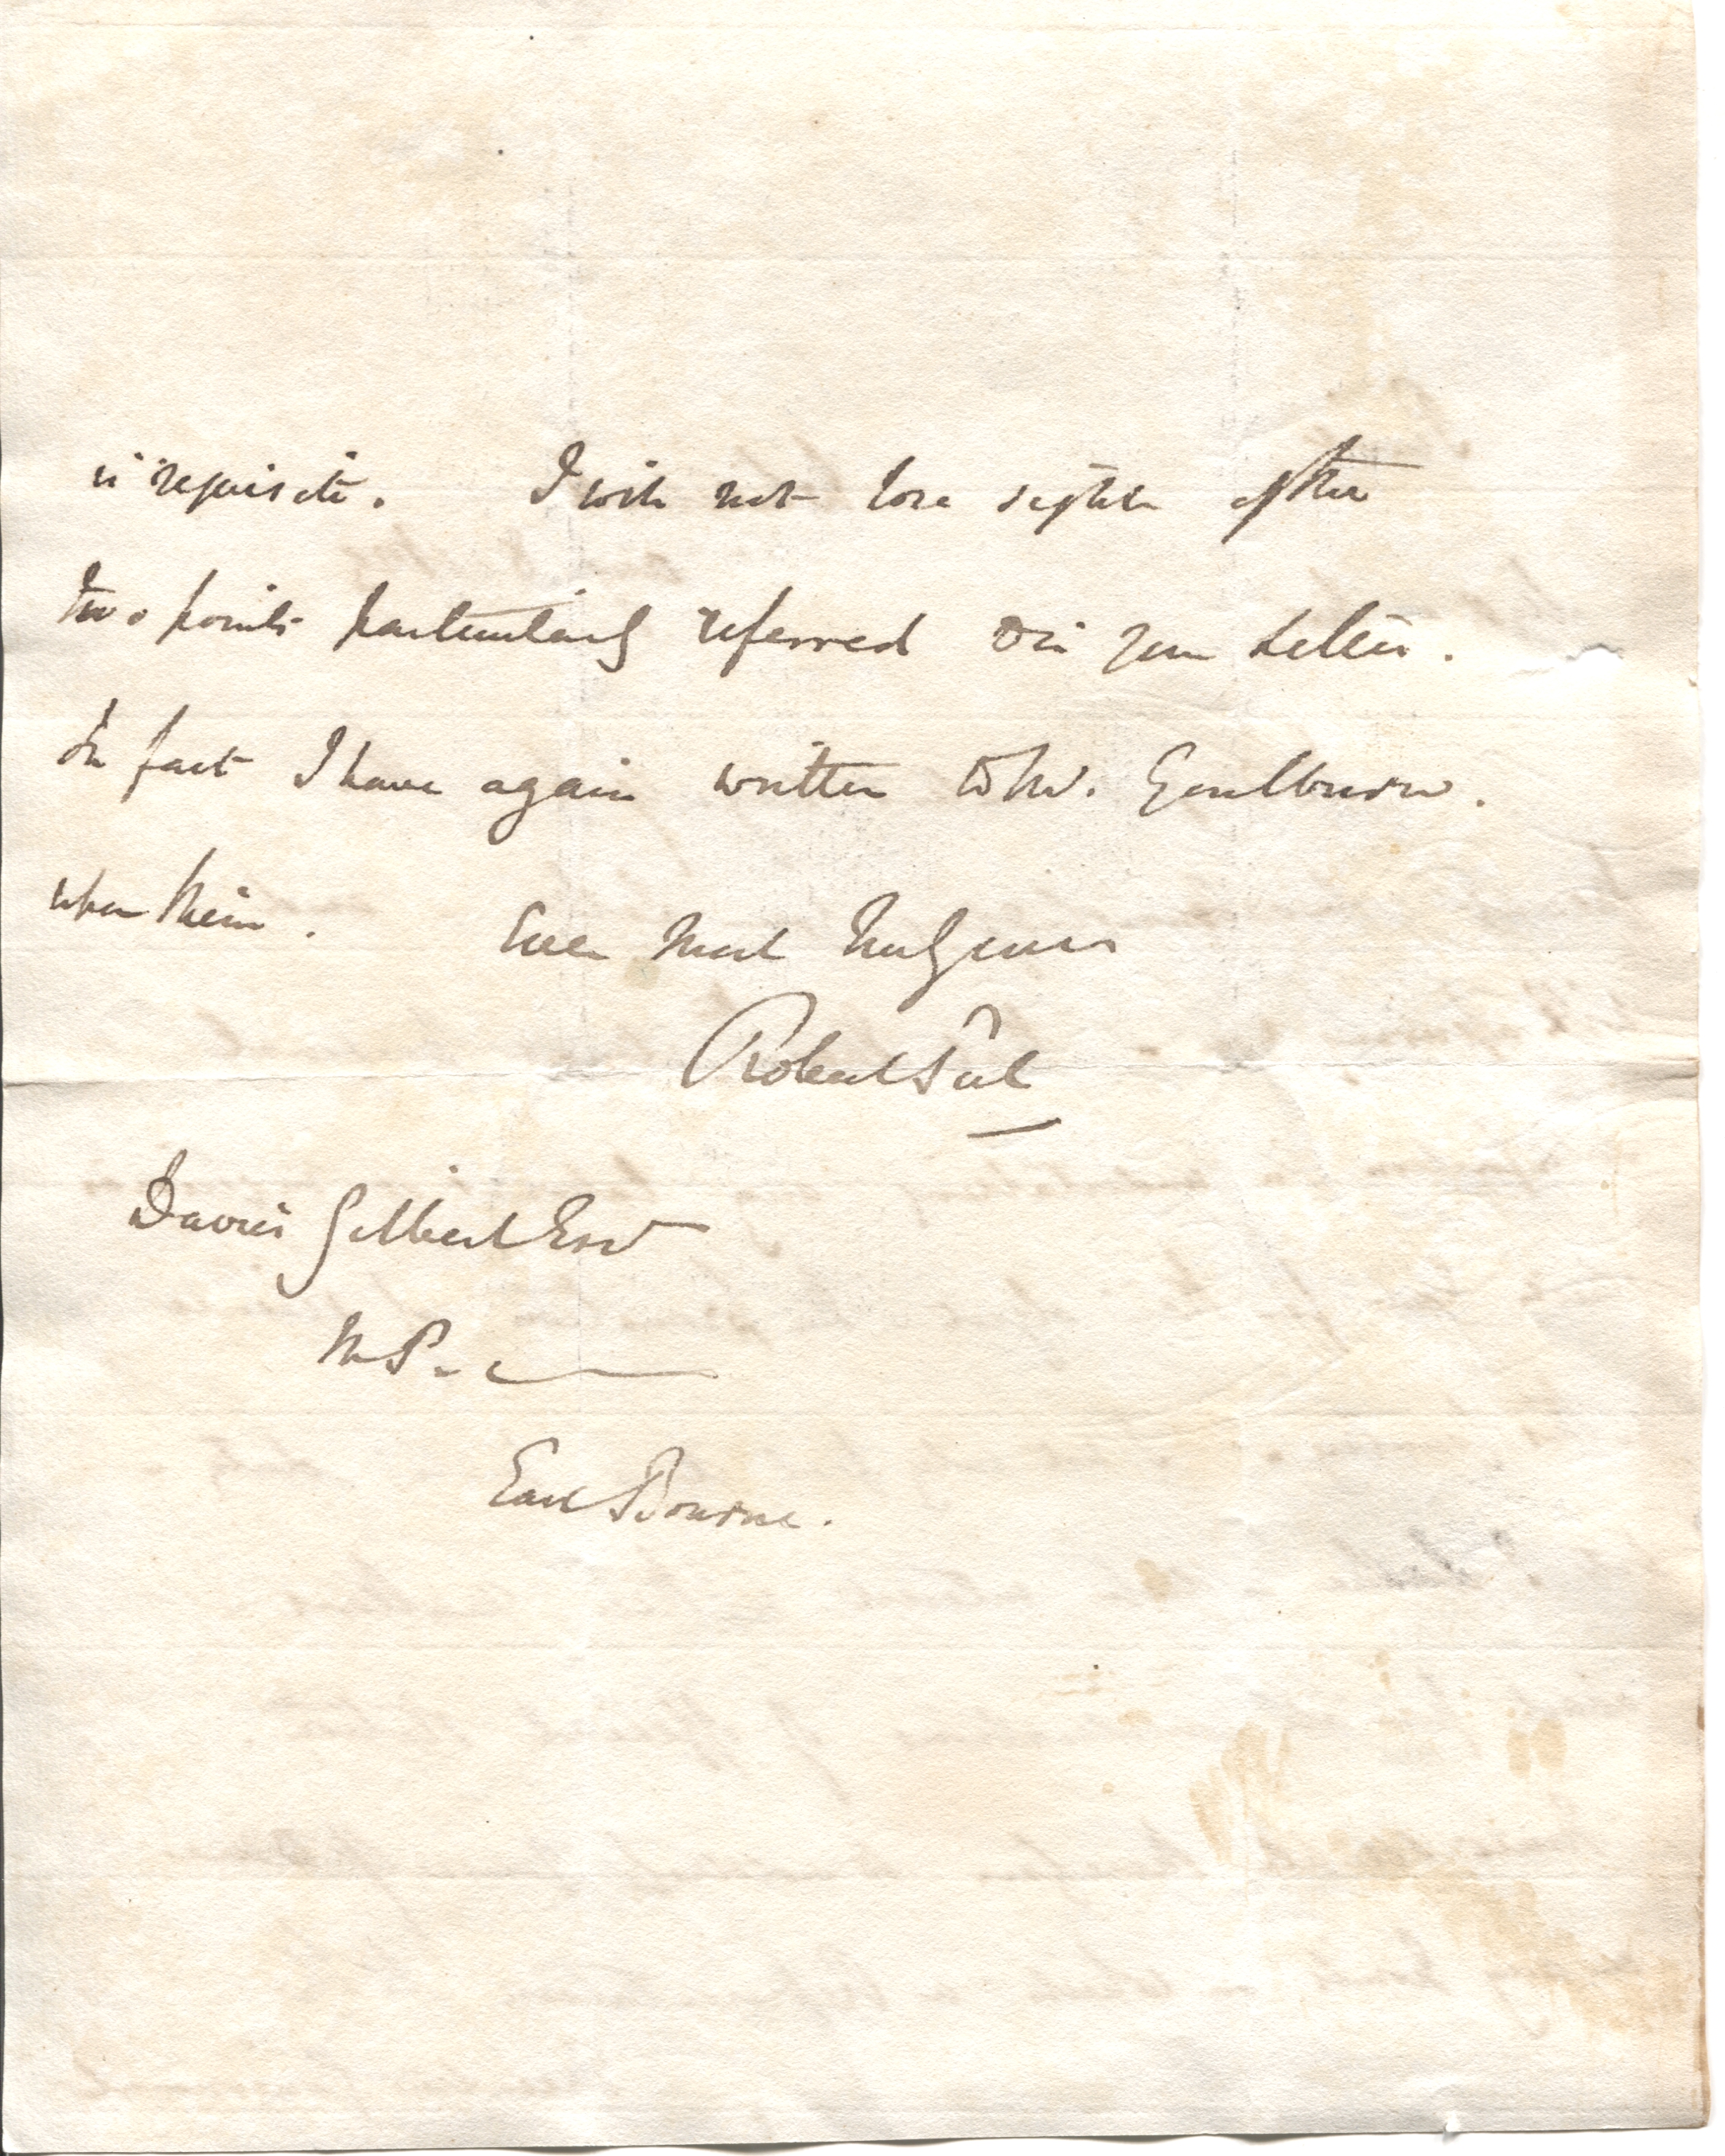 is requisite. I will not lose sight of the
two points particularly referred to in your Letter.
In fact I have again written to Mr. Goulburn.
upon them. Ever Most truly yours
Robert Peel
Davies Gilbert Esqr
M P.
East Bourne.